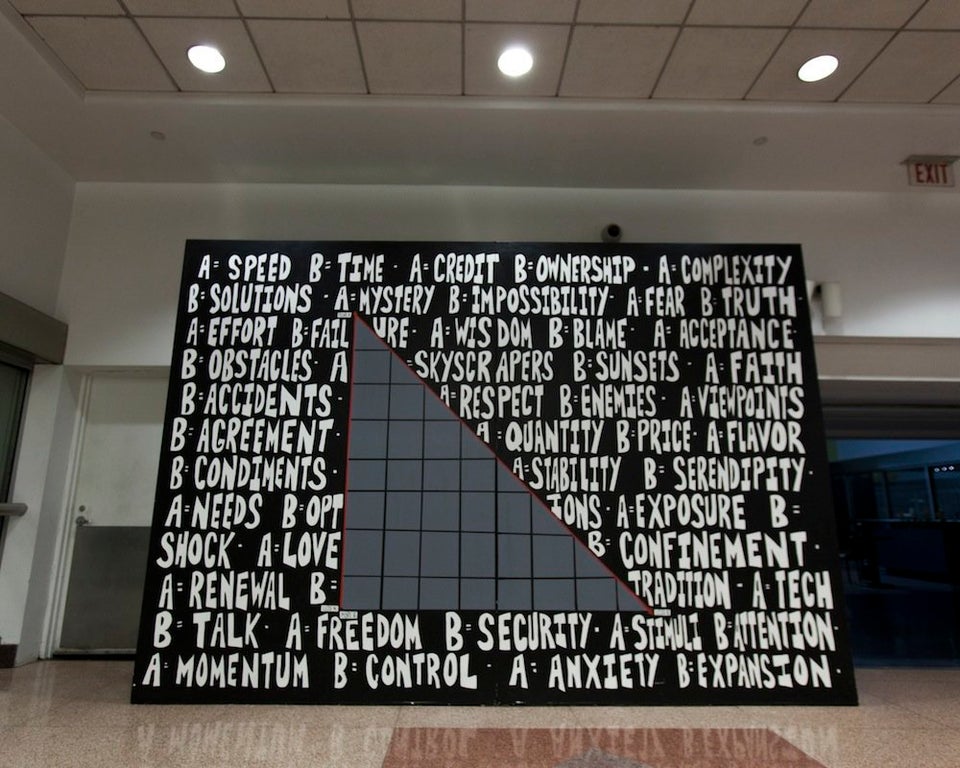 EXIT
A= SPEED B= TIME · A= CREDIT B= OWNERSHIP · A= COMPLEXITY
B= SOLUTIONS · A= MYSTERY B= IMPOSSIBILITY · A= FEAR B= TRUTH ·
A= EFFORT B= FAIL URE · A= WISDOM B= BLAME · A= ACCEPTANCE
B= OBSTACLES · A = SKYSCRAPERS B= SUNSETS · A= FAITH
B= ACCIDENTS · A= RESPECT B= ENEMIES · A= VIEWPOINTS
B= AGREEMENT · A= QUANTITY B= PRICE · A= FLAVOR
B= CONDIMENTS · A= STABILITY B= SERENDIPITY ·
A= NEEDS B= OPT IONS · A= EXPOSURE B=
SHOCK · A= LOVE B= CONFINEMENT ·
A= RENEWAL B= TRADITION · A= TECH
B= TALK · A= FREEDOM B= SECURITY · A= STIMULI B= ATTENTION ·
A= MOMENTUM B= CONTROL · A= ANXIETY B= EXPANSION ·